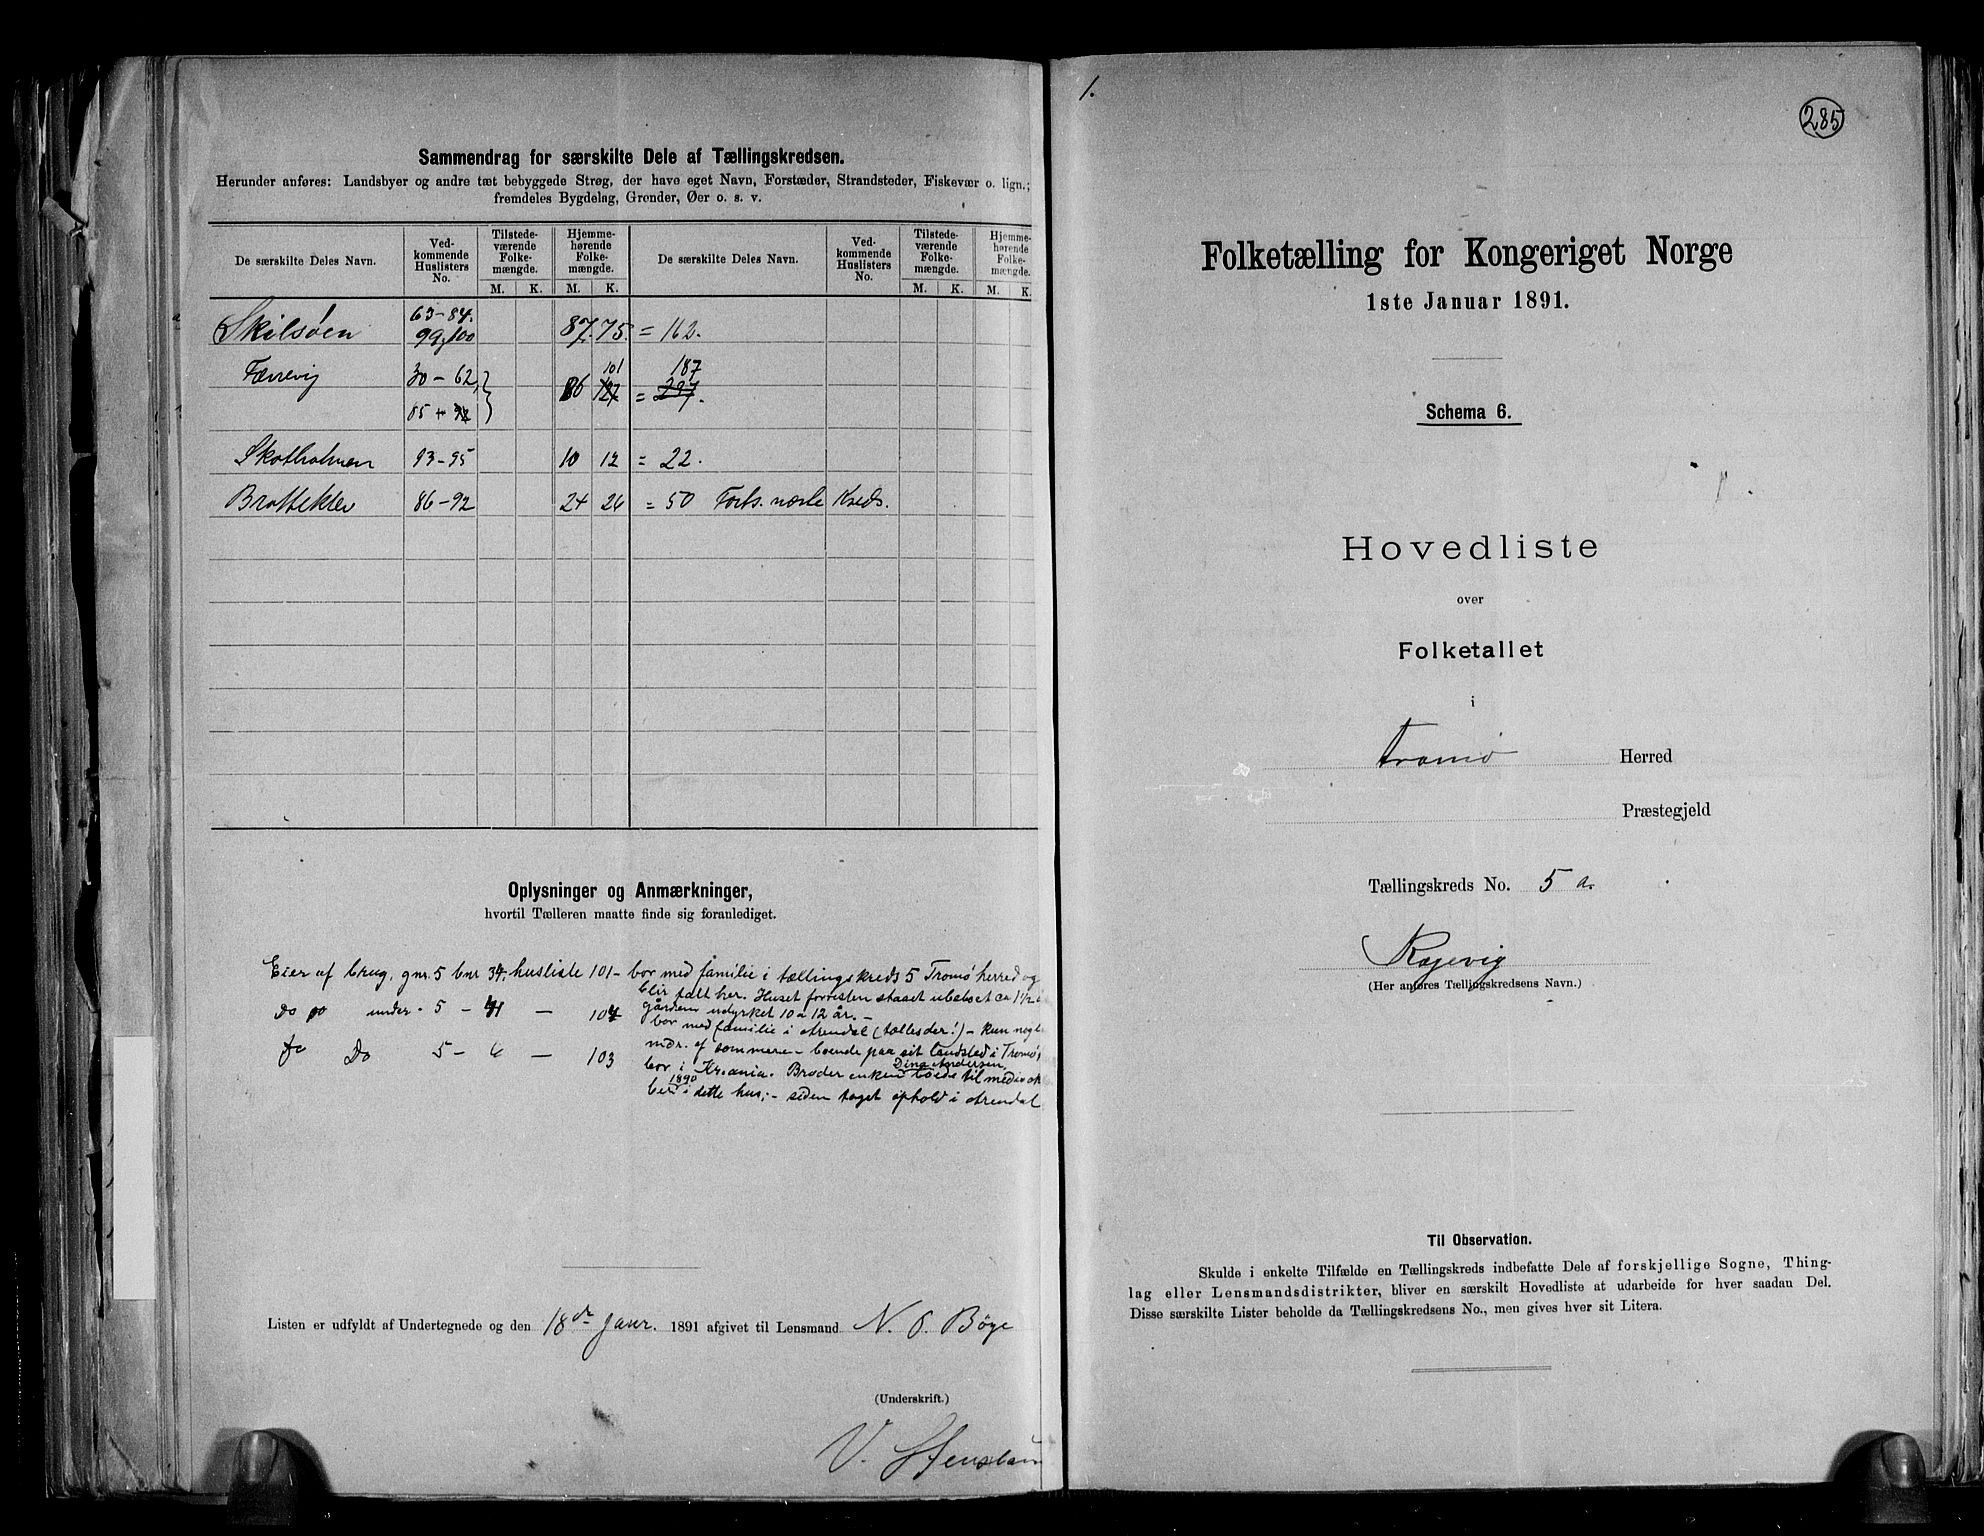 Sammendrag for særskilte Dele af Tællingskredsen.
Herunder anføres: Landsbyer og andre tæt bebyggede Strøg, der have eget Navn, Forstæder, Strandsteder, Fiskevær o. lign.;
fremdeles Bygdelag, Grender, Øer o. s. v.
De særskilte Deles Navn. Ved-kommende Huslisters No. Tilstede-værende Folke-mængde. Hjemme-hørende Folke-mængde. De særskilte Deles Navn. Ved-kommende Huslisters No. Tilstede-værende Folke-mængde. Hjemme-hørende Folke-mængde.
M. K. M. K. M. K. M. K.
Skilsøen 63-84. 99, 100 87. 75. = 162.
Færrevig 30-62, 85 86 101 127 = 187 297.
Skotholmen 93-95 10 12 = 22.
Brattekler 86-92 24 26 = 50 Forts. næste Kreds.
Oplysninger og Anmærkninger,
hvortil Tælleren maatte finde sig foranlediget.
Eier af brug, gnr. 5 bnr 34. husliste 101 - bor med familie i tællingskreds 5 Tromø herred og
blir talt her. Huset forresten staaet ubeboet ca 1½
gården udyrket 10 a 12 år. -
Do do under 5 - 41 - 104 bor med familie i Arendal (tælles der!) - kun nogl
mdr. af sommeren boende paa sit landsted i Tromø,
Do Do 5 - 6 - 103 bor i Kr.ania. Broder enken Dina Andersen boede til med
1890 i dette hus; - siden taget ophold i Arendal
Listen er udfyldt af Undertegnede og den 18de Janr. 1891 afgivet til Lensmand N. O. Bøge
(Underskrift.)
V.
1.
285
Folketælling for Kongeriget Norge
1ste Januar 1891.
Schema 6.
Hovedliste
over
Folketallet
i
Tromø Herred
Præstegjeld
Tællingskreds No. 5 a.
Rægevig
(Her anføres Tællingskredsens Navn.)
Til Observation.
Skulde i enkelte Tilfælde en Tællingskreds indbefatte Dele af forskjellige Sogne, Thing-
lag eller Lensmandsdistrikter, bliver en særskilt Hovedliste at udarbeide for hver saadan Del.
Disse særskilte Lister beholde da Tællingskredsens No., men gives hver sit Litera.